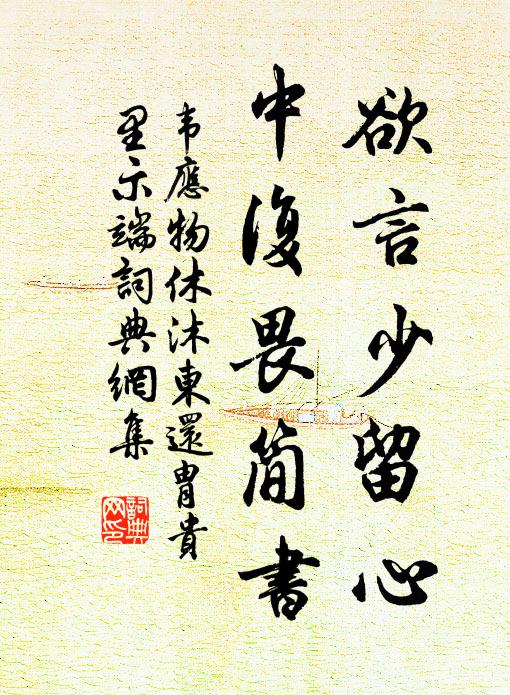 欲言少留心
中復畏简書
韦應物休沐東還胄貴
里示端詞典網集
詞典網印